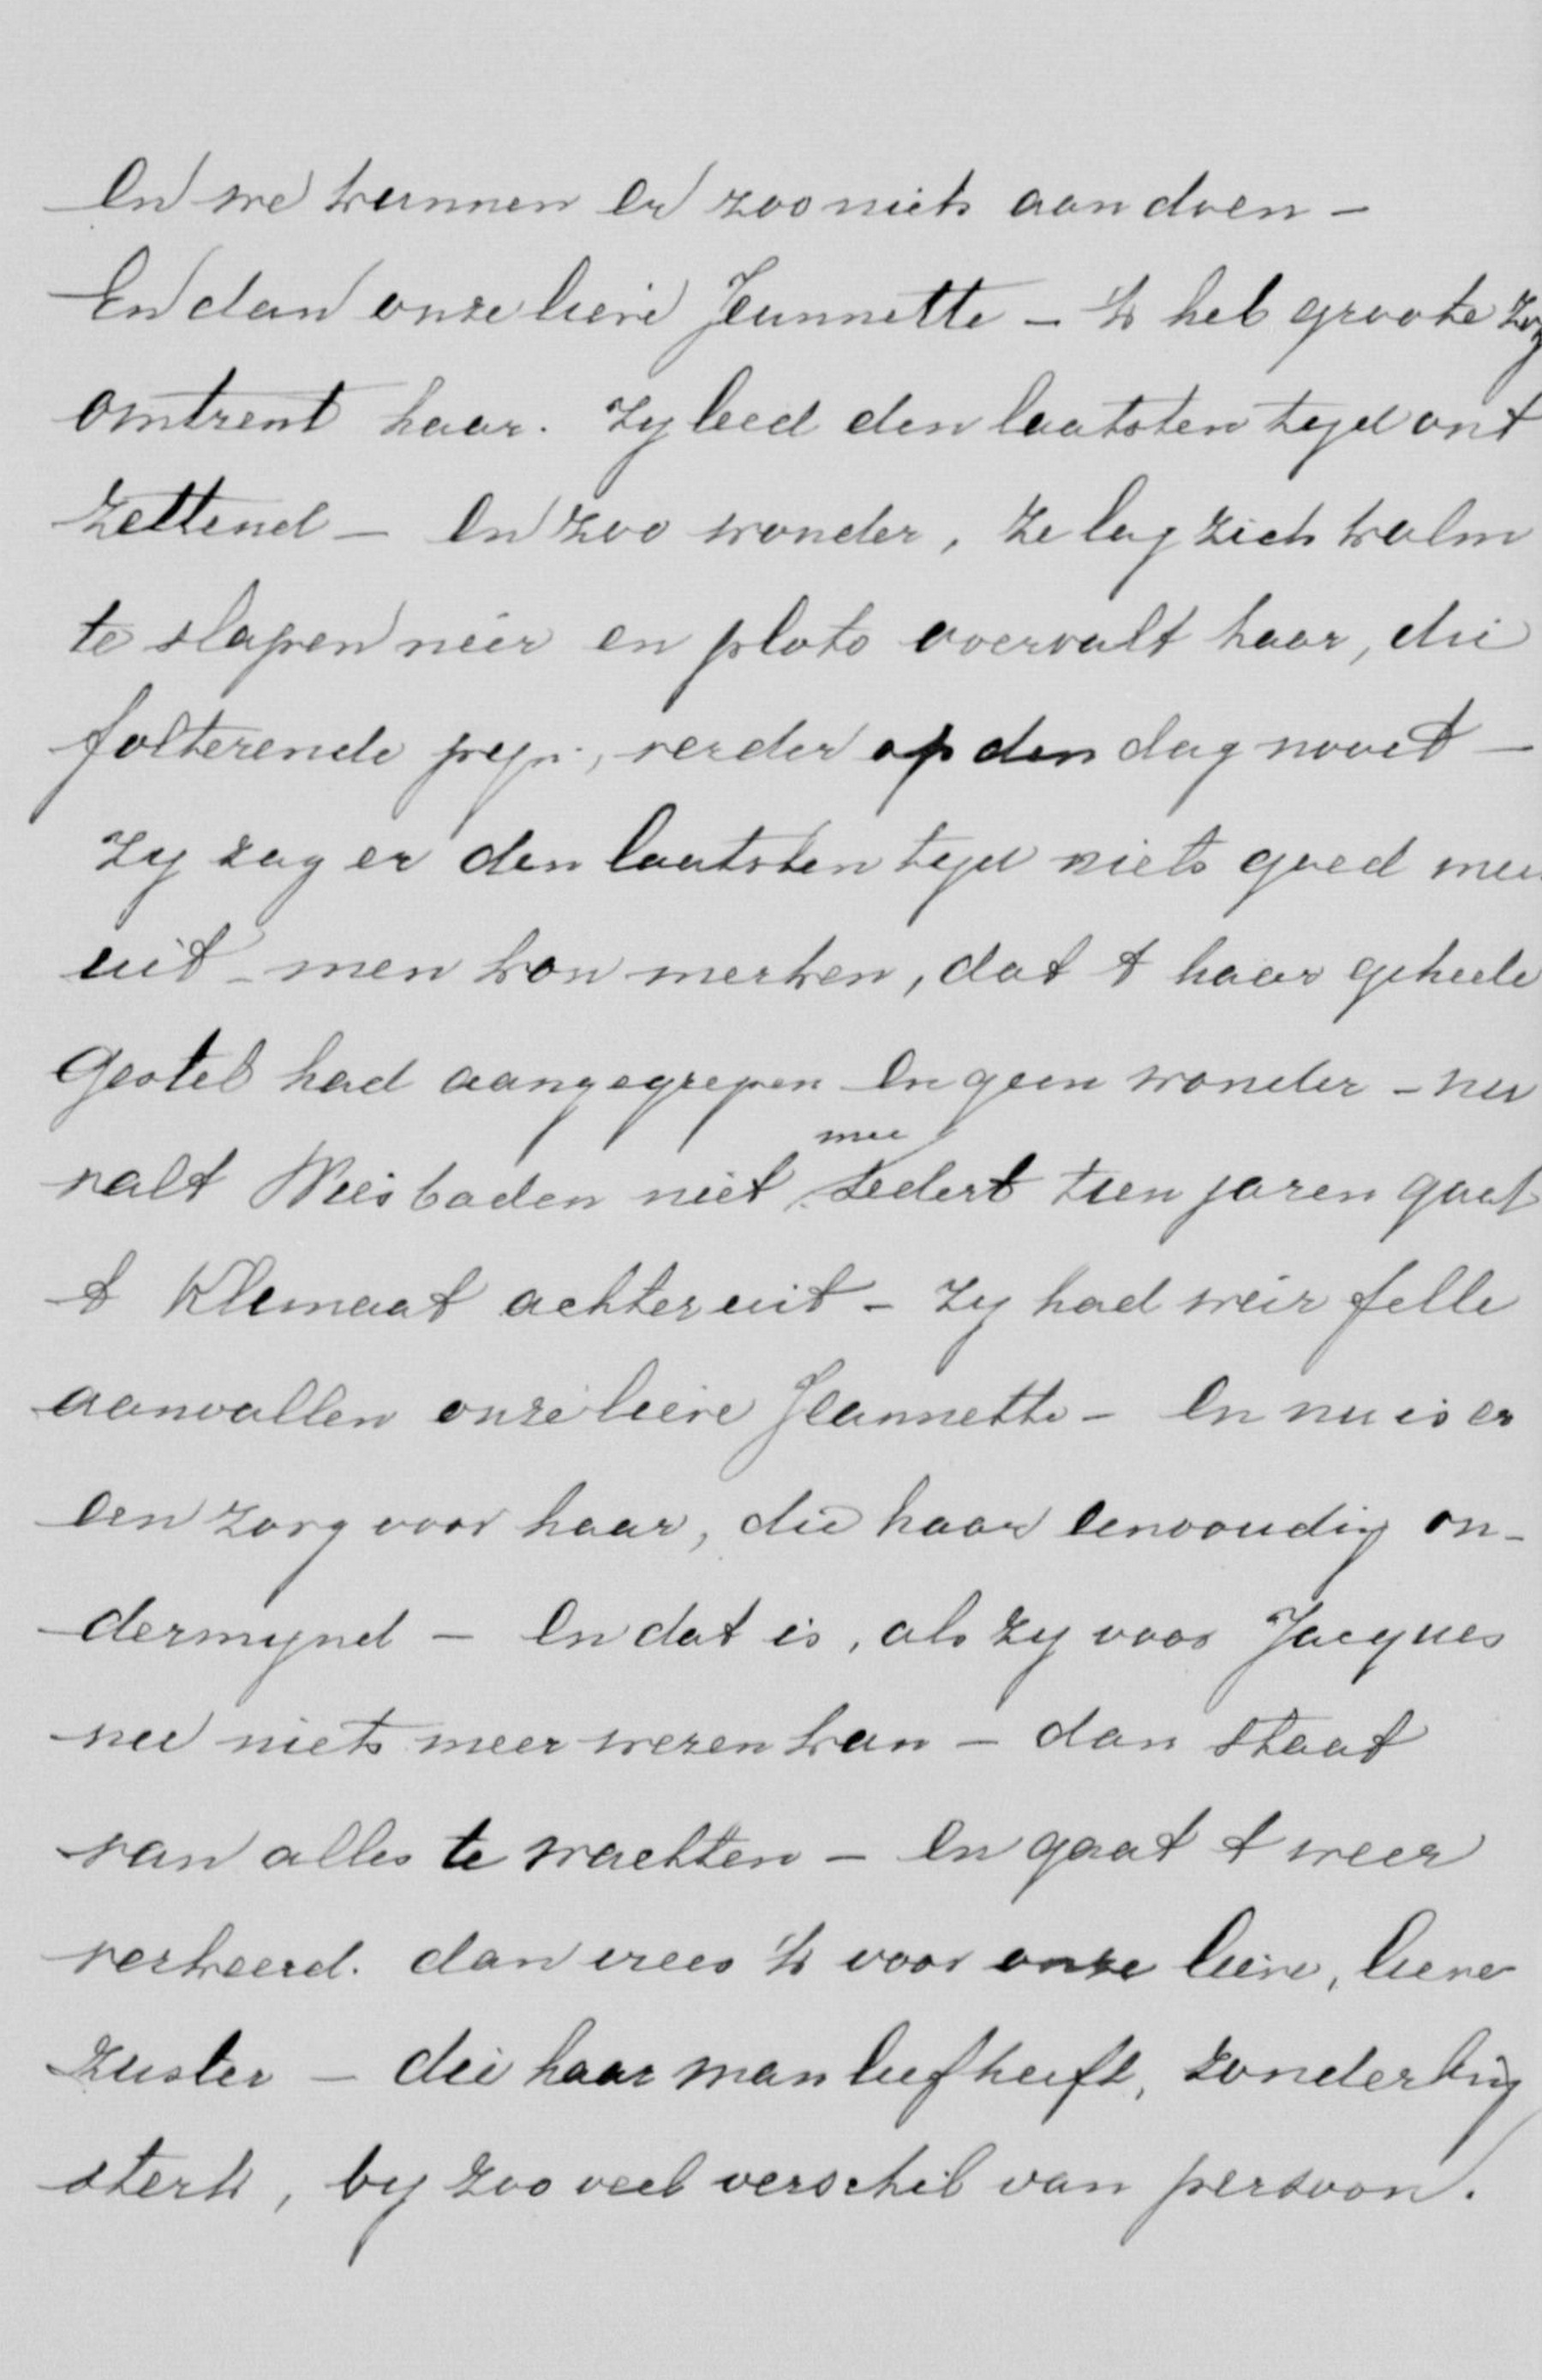 En we kunnen er zoo niets aan doen –
En dan onze lieve Jeannette – 'k heb groote zorg
omtrent haar. Zy leed den laatsten tyd ont
zettend – En zoo wonder, ze leg zich kalm
te slapen neer en plots overvalt haar, die
folterende pyn, verder op den dag nooit –
Zy zag er den laatsten tyd niets goed meer
uit – men kon merken, dat 't haar geheele
gestel had aangegrepen En geen wonder – nu
valt Wiesbaden niet mee, sedert tien jaren gaat
't Klimaat achteruit – Zy had weer felle
aanvallen onze lieve Jeannette – En nu is er
een zorg voor haar, die haar eenvoudig on-
dermynd – En dat is, als zy voor Jacques
nu niets meer wezen kan – dan staat
van alles te wachten – En gaat 't weer
verkeerd. dan vrees 'k voor onze lieve, lieve
zuster – die haar man lief heeft, zonderling
sterk, by zoo veel verschil van persoon.